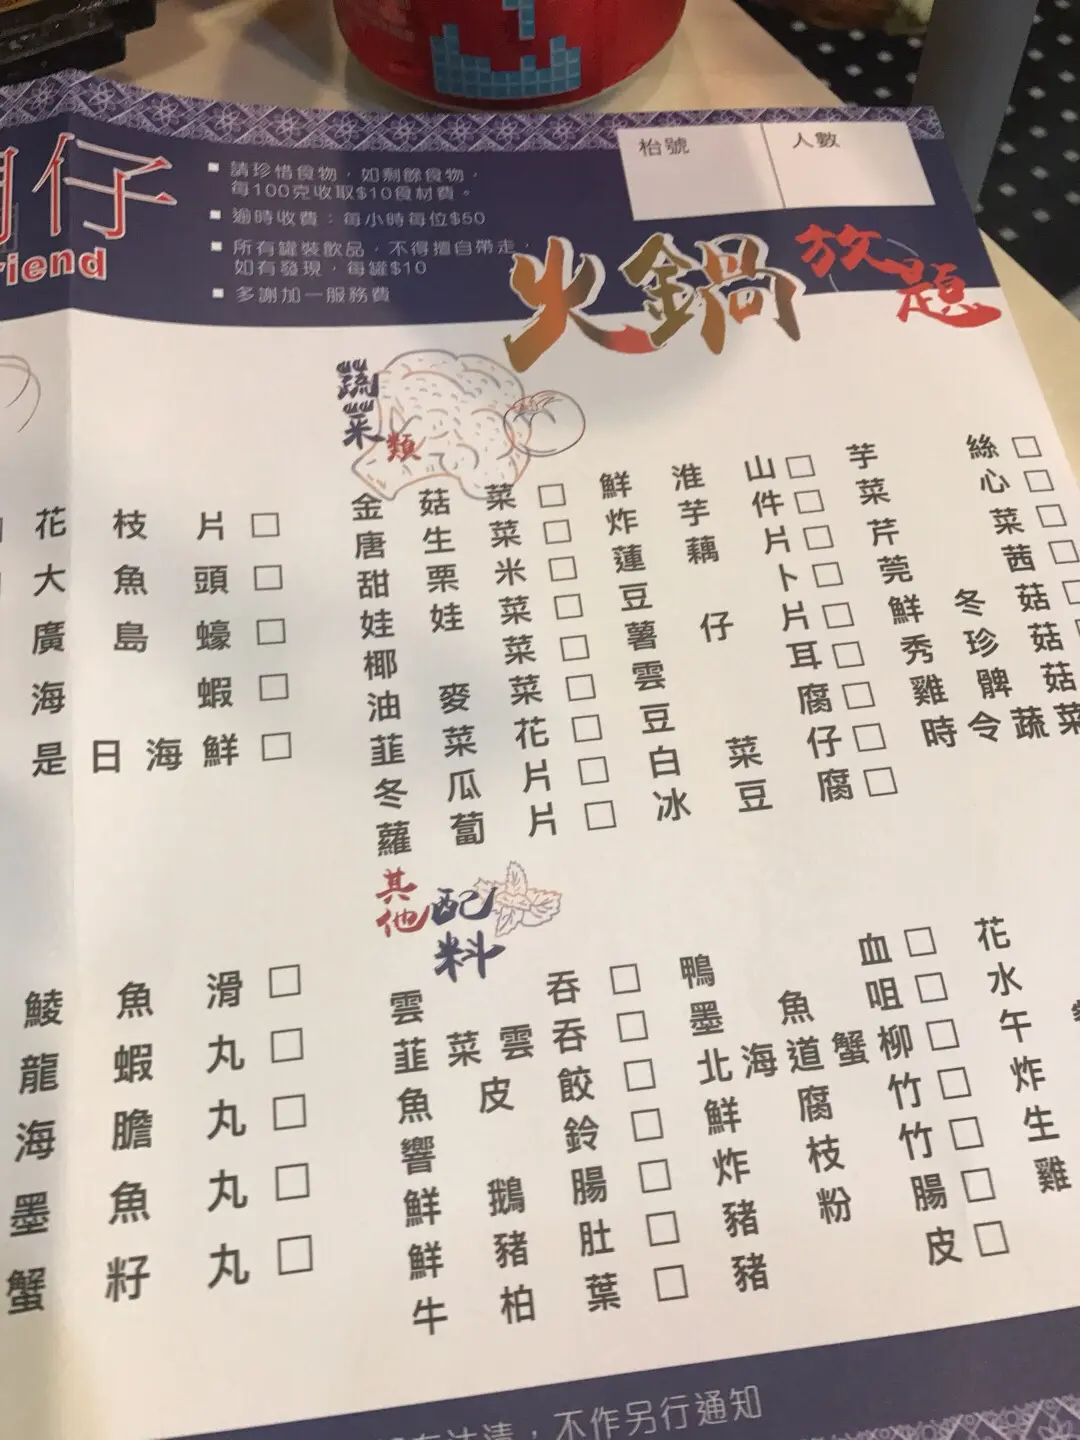 仔
riend
■ 請珍惜食物，如剩餘食物，
每100克收取$10食材費。
■ 逾時收費：每小時每位$50
■ 所有罐裝飲品，不得擅自帶走，
如有發現，每罐$10
■ 多謝加一服務費
枱號
人數
火鍋放題
花枝片 □
大魚頭 □
廣島蠔 □
海蝦 □
是日海鮮 □
鯪魚滑 □
龍蝦丸 □
海膽丸 □
墨魚丸 □
蟹籽丸 □
蔬菜類
金菇菜 □ 鮮淮山 □ 芋絲 □
唐生菜 □ 炸芋件 □ 菜心 □
甜栗米 □ 蓮藕片 □ 芹菜 □
娃娃菜 □ 豆卜 □ 莞茜 □
椰菜 □ 薯仔片 □ 鮮冬菇 □
油麥菜 □ 雲耳 □ 秀珍菇 □
韮菜花 □ 豆腐 □ 雞髀菇
冬瓜片 □ 白菜仔 □ 時令蔬菜
蘿蔔片 □ 冰豆腐 □
其他配料
雲吞 □ 鴨血 □ 花
韮菜雲吞 □ 墨魚咀 □ 水
魚皮餃 □ 北海道蟹柳 □ 午
響鈴 □ 鮮腐竹 □ 炸
鮮鵝腸 □ 炸枝竹 □ 生
鮮豬肚 □ 豬粉腸 □ 雞
牛柏葉 □ 豬皮 □
，不作另行通知